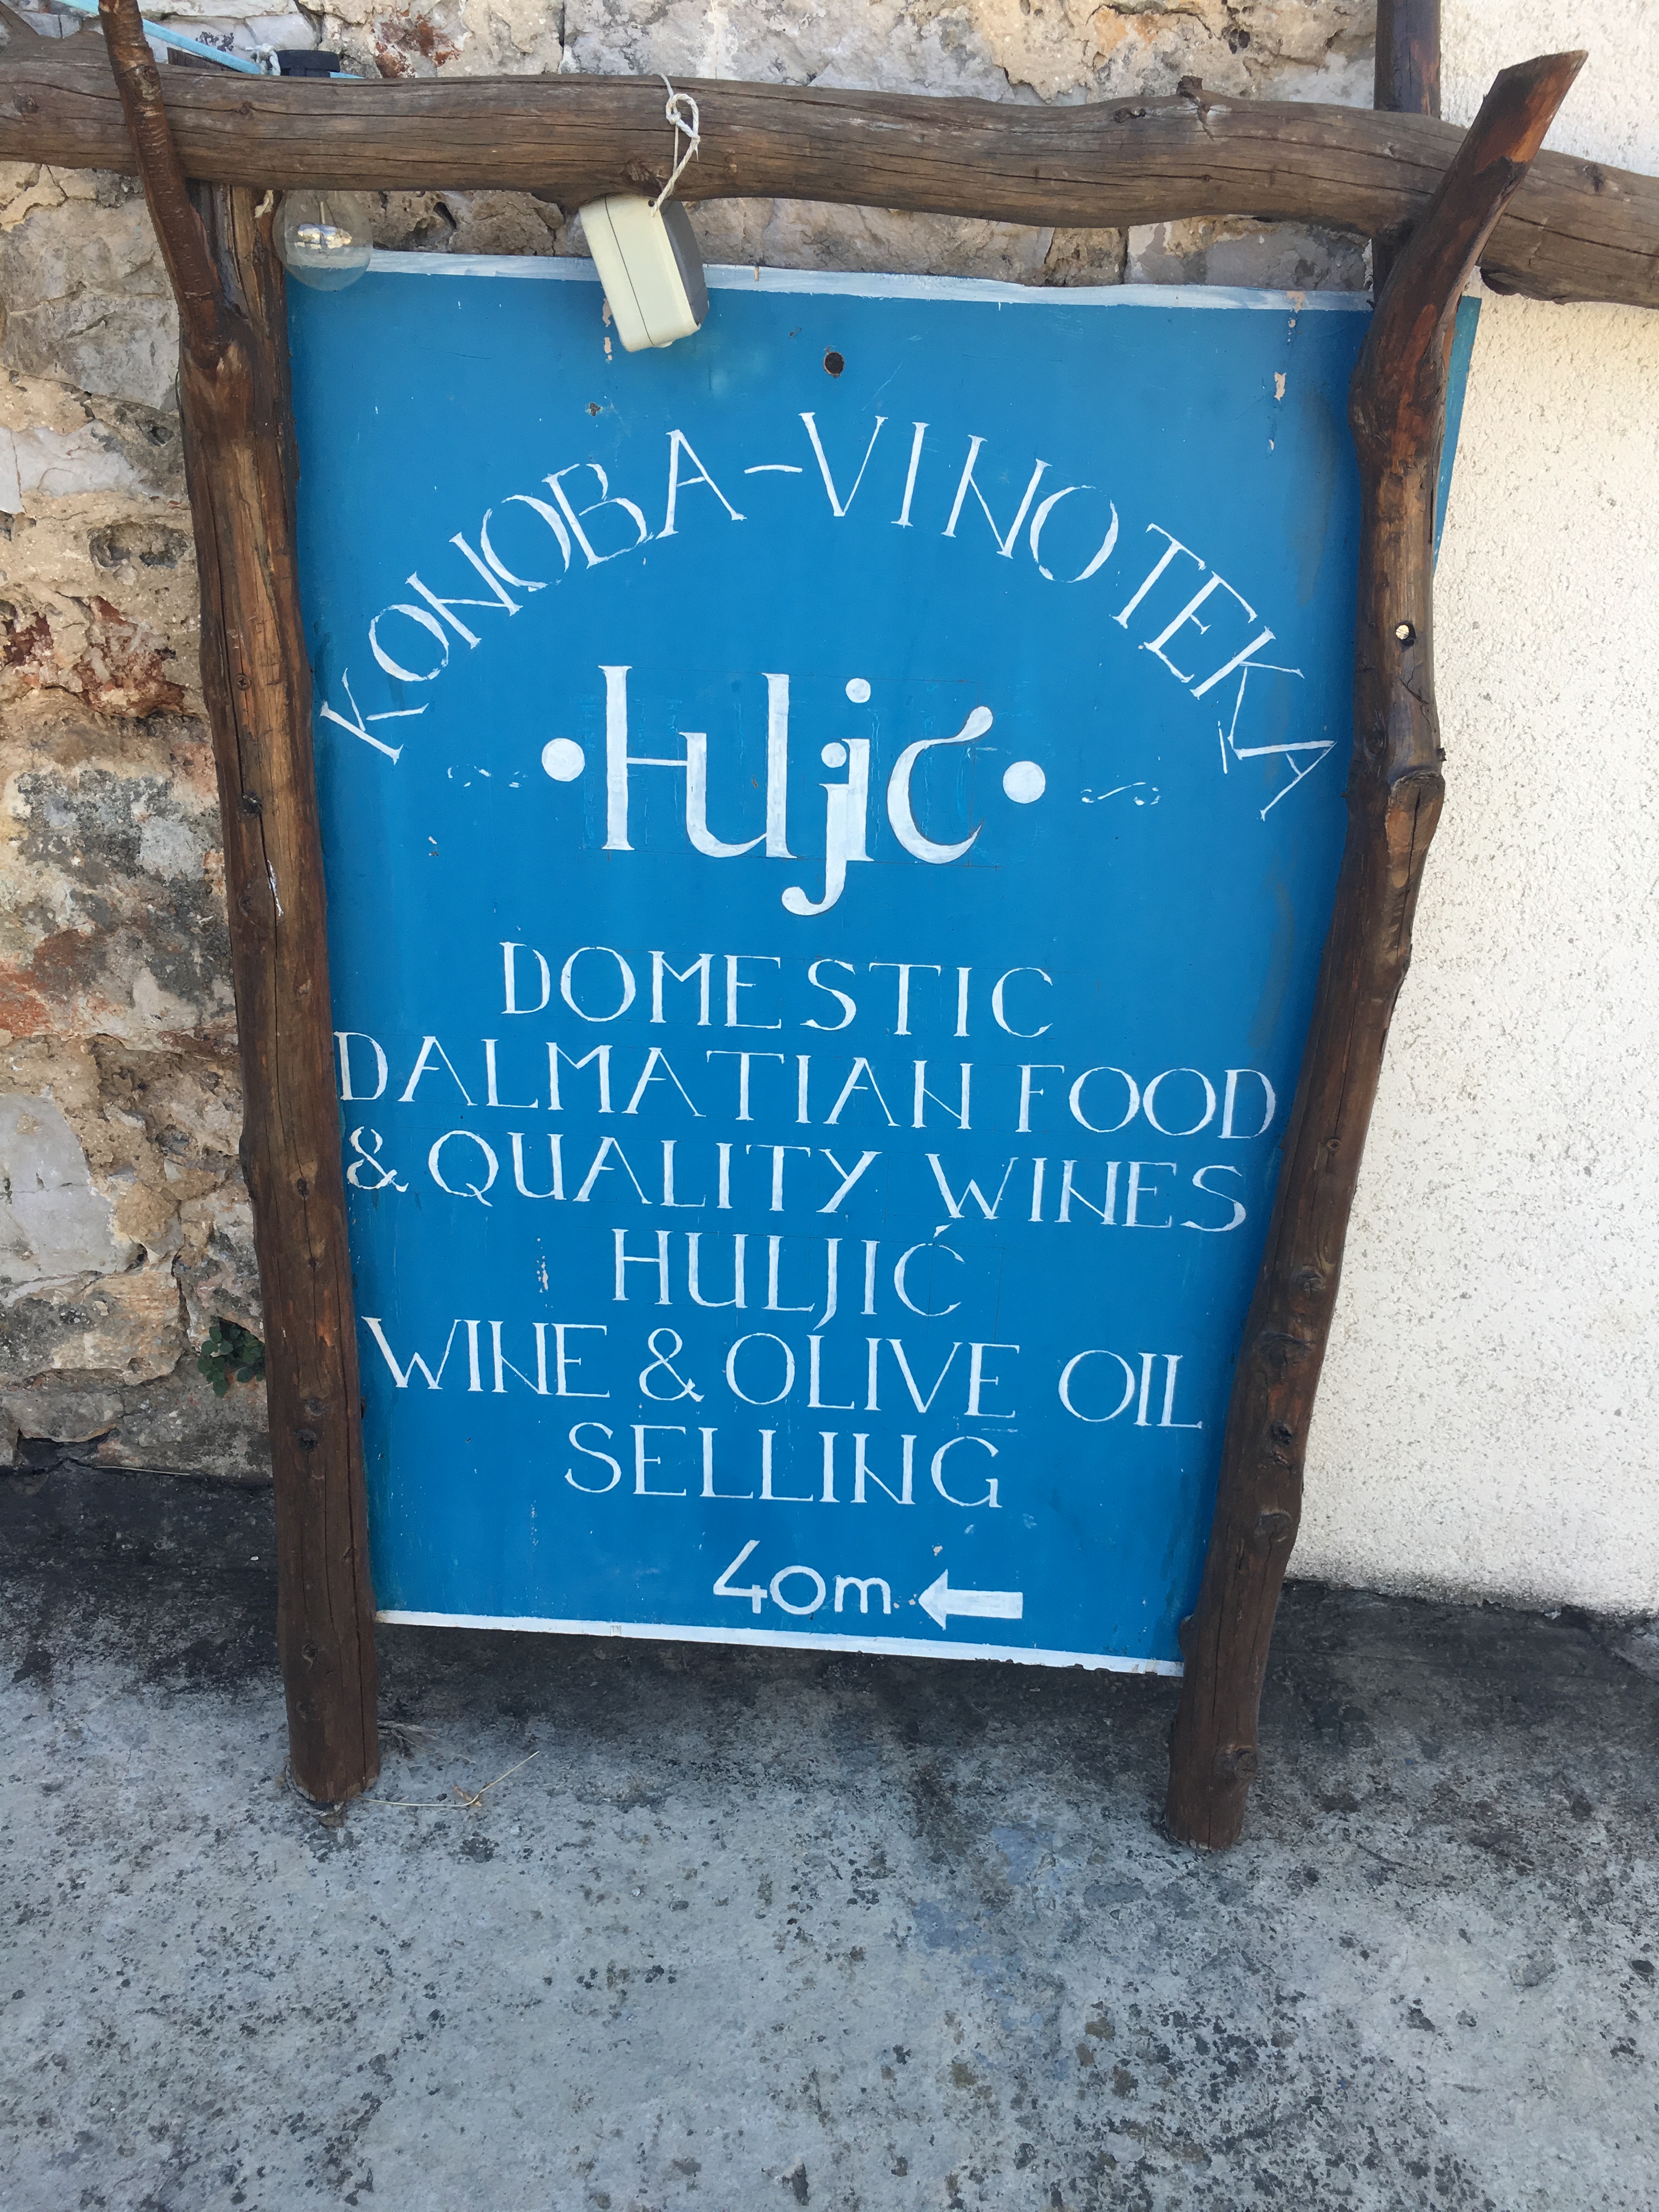 KONOBA-VINOTEKA
•Huljić•
DOMESTIC
DALMATIAN FOOD
& QUALITY WINES
HULJIĆ
WINE & OLIVE OIL
SELLING
40m ←